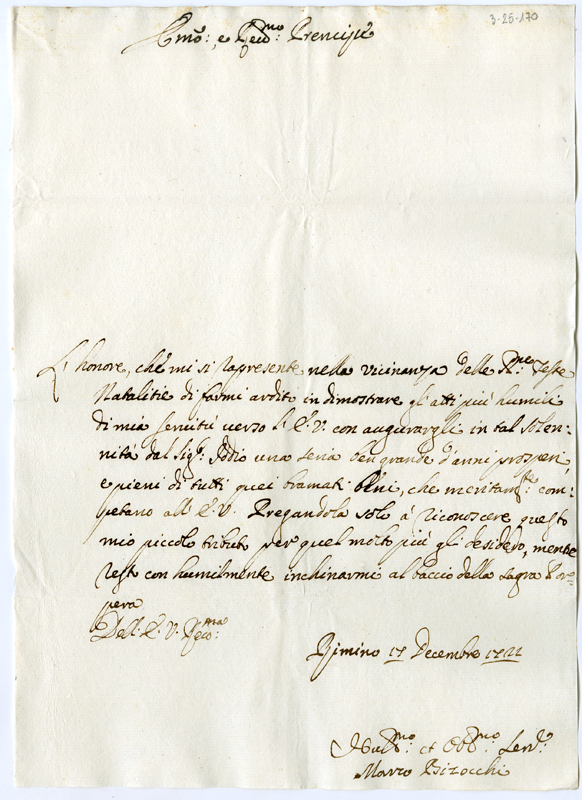 3-25-170
Emo: e Reũmo: Prencipe
L'honore, che mi si rapresente nella vicinanza delle Sme: Feste
Natalitie di farmi ardito in dimostrare gl'atti più humili
di mia servitù verso l'E. V. con augurargli in tal solen=
nità dal Sigr: Iddio una seria ben grande d'anni prosperi,
e pieni di tutti quei bramati beni, che meritamte: com=
petano all'E. V. Pregandola solo à riconoscere questo
mio piccolo tributo per quel molto più gli desidero, mentre
resto con humilmente inchinarmi al baccio della sagra Por=
pora
Dell'E. V. Reũma:
Rimino 17 Decembre 1722
Humo: et Obbmo: Serve:
Marco Bizocchi